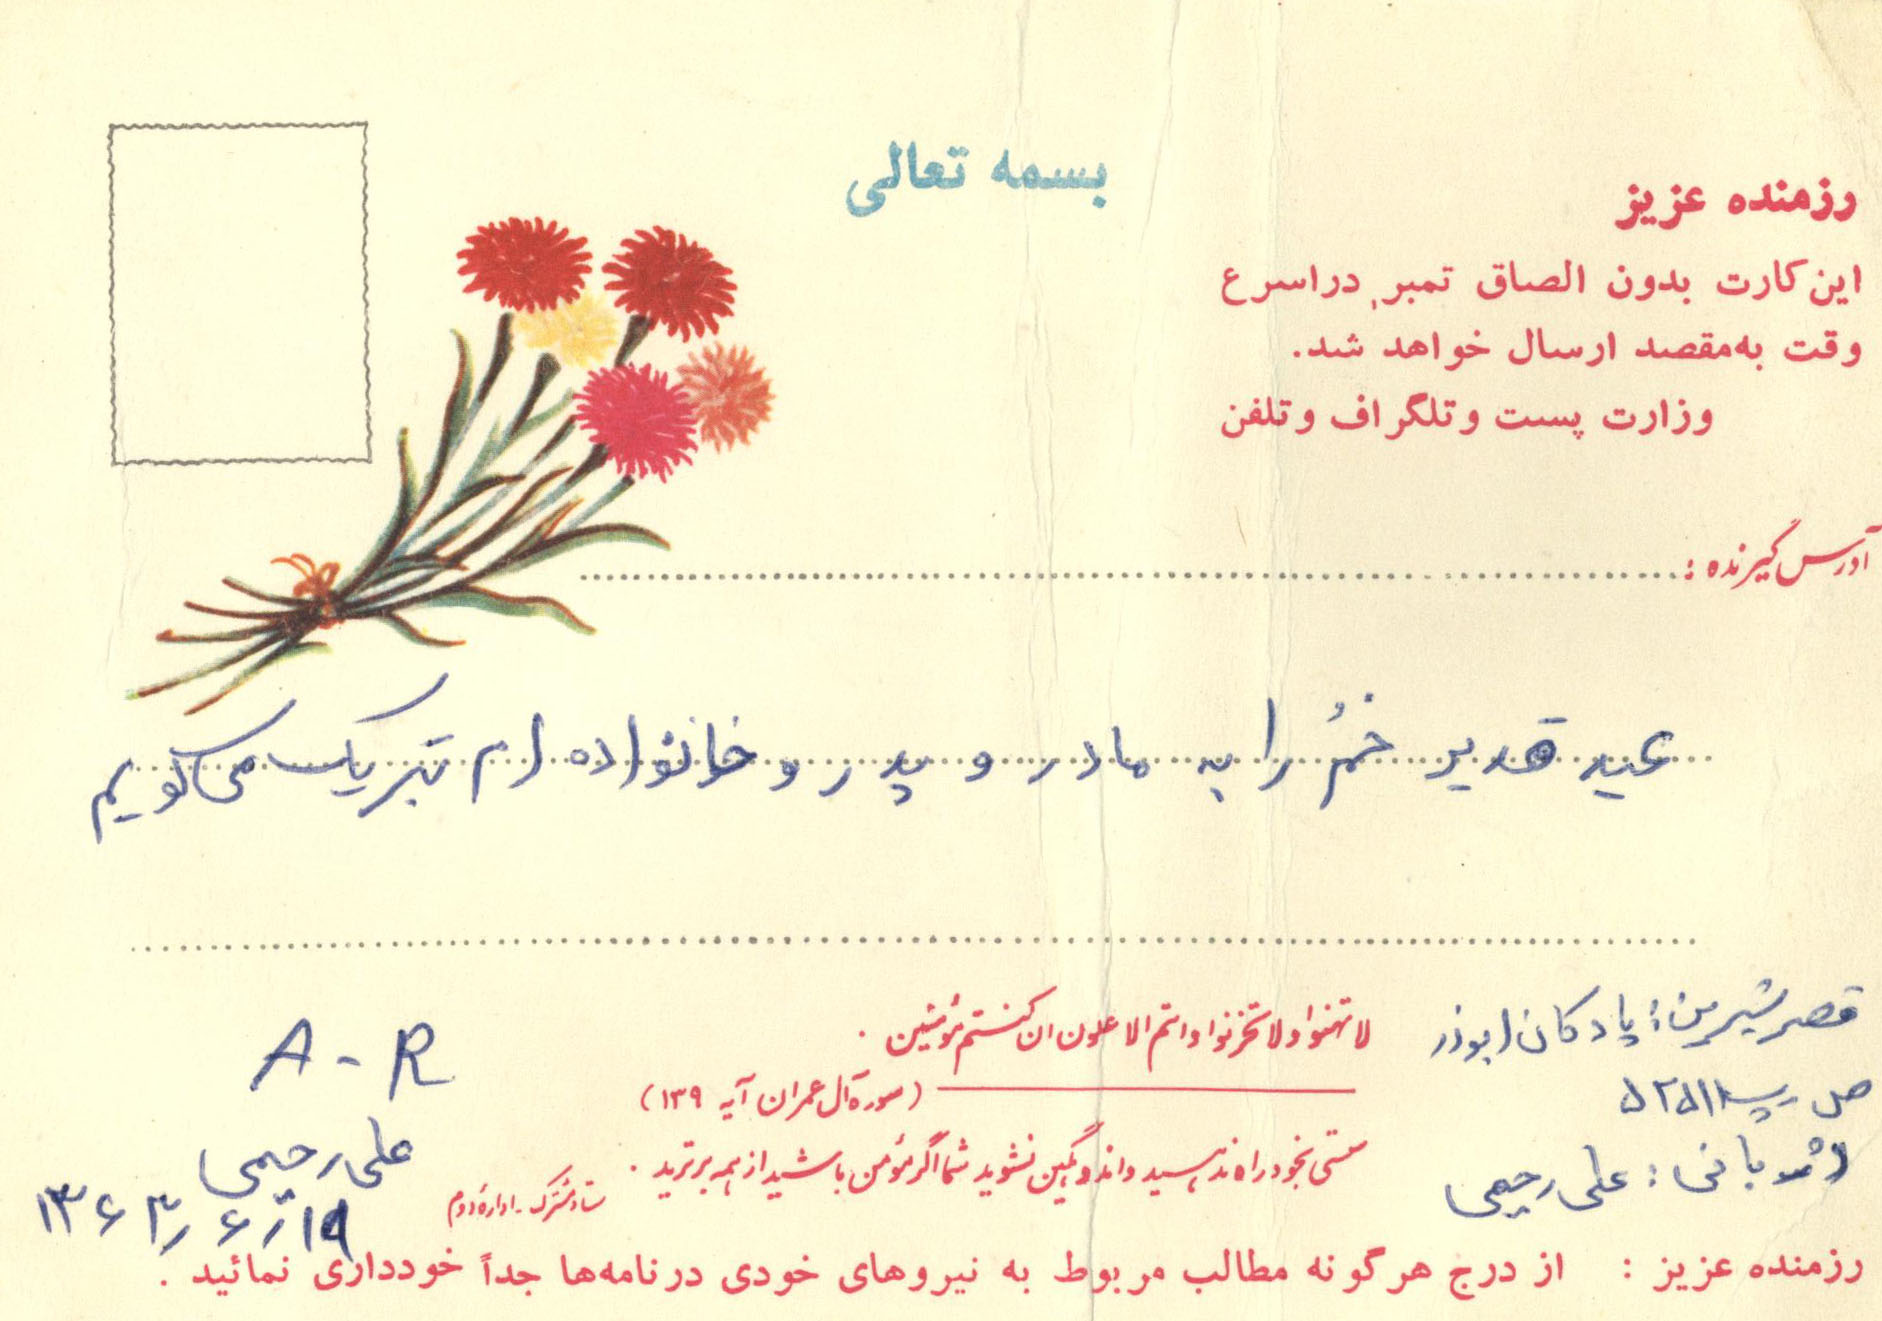 بسمه تعالی
رزمنده عزیز
این کارت بدون الصاق تمبر، در اسرع
وقت به مقصد ارسال خواهد شد.
وزارت پست و تلگراف و تلفن
آدرس گیرنده :
عید قدیر خمُ را به مادر و پدر و خانواده ام تبریک می گویم
قصرشیرین؛ پادگان ابوذر
ص پ ۵۲۵۱۱
علی رحیمی
لا تهنوا و لا تحزنوا و انتم الاعلون ان کنتم مؤمنین .
(سوره آل عمران آیه ۱۳۹)
سستی بخود راه ندهید و اندوهگین نشوید شما اگر مؤمن باشید از همه برترید .
ستاد مشترک - اداره دوم
A - R
علی رحیمی
۱۹ر۶ر۱۳۶۳
رزمنده عزیز : از درج هرگونه مطالب مربوط به نیروهای خودی در نامه‌ها جداً خودداری نمائید .